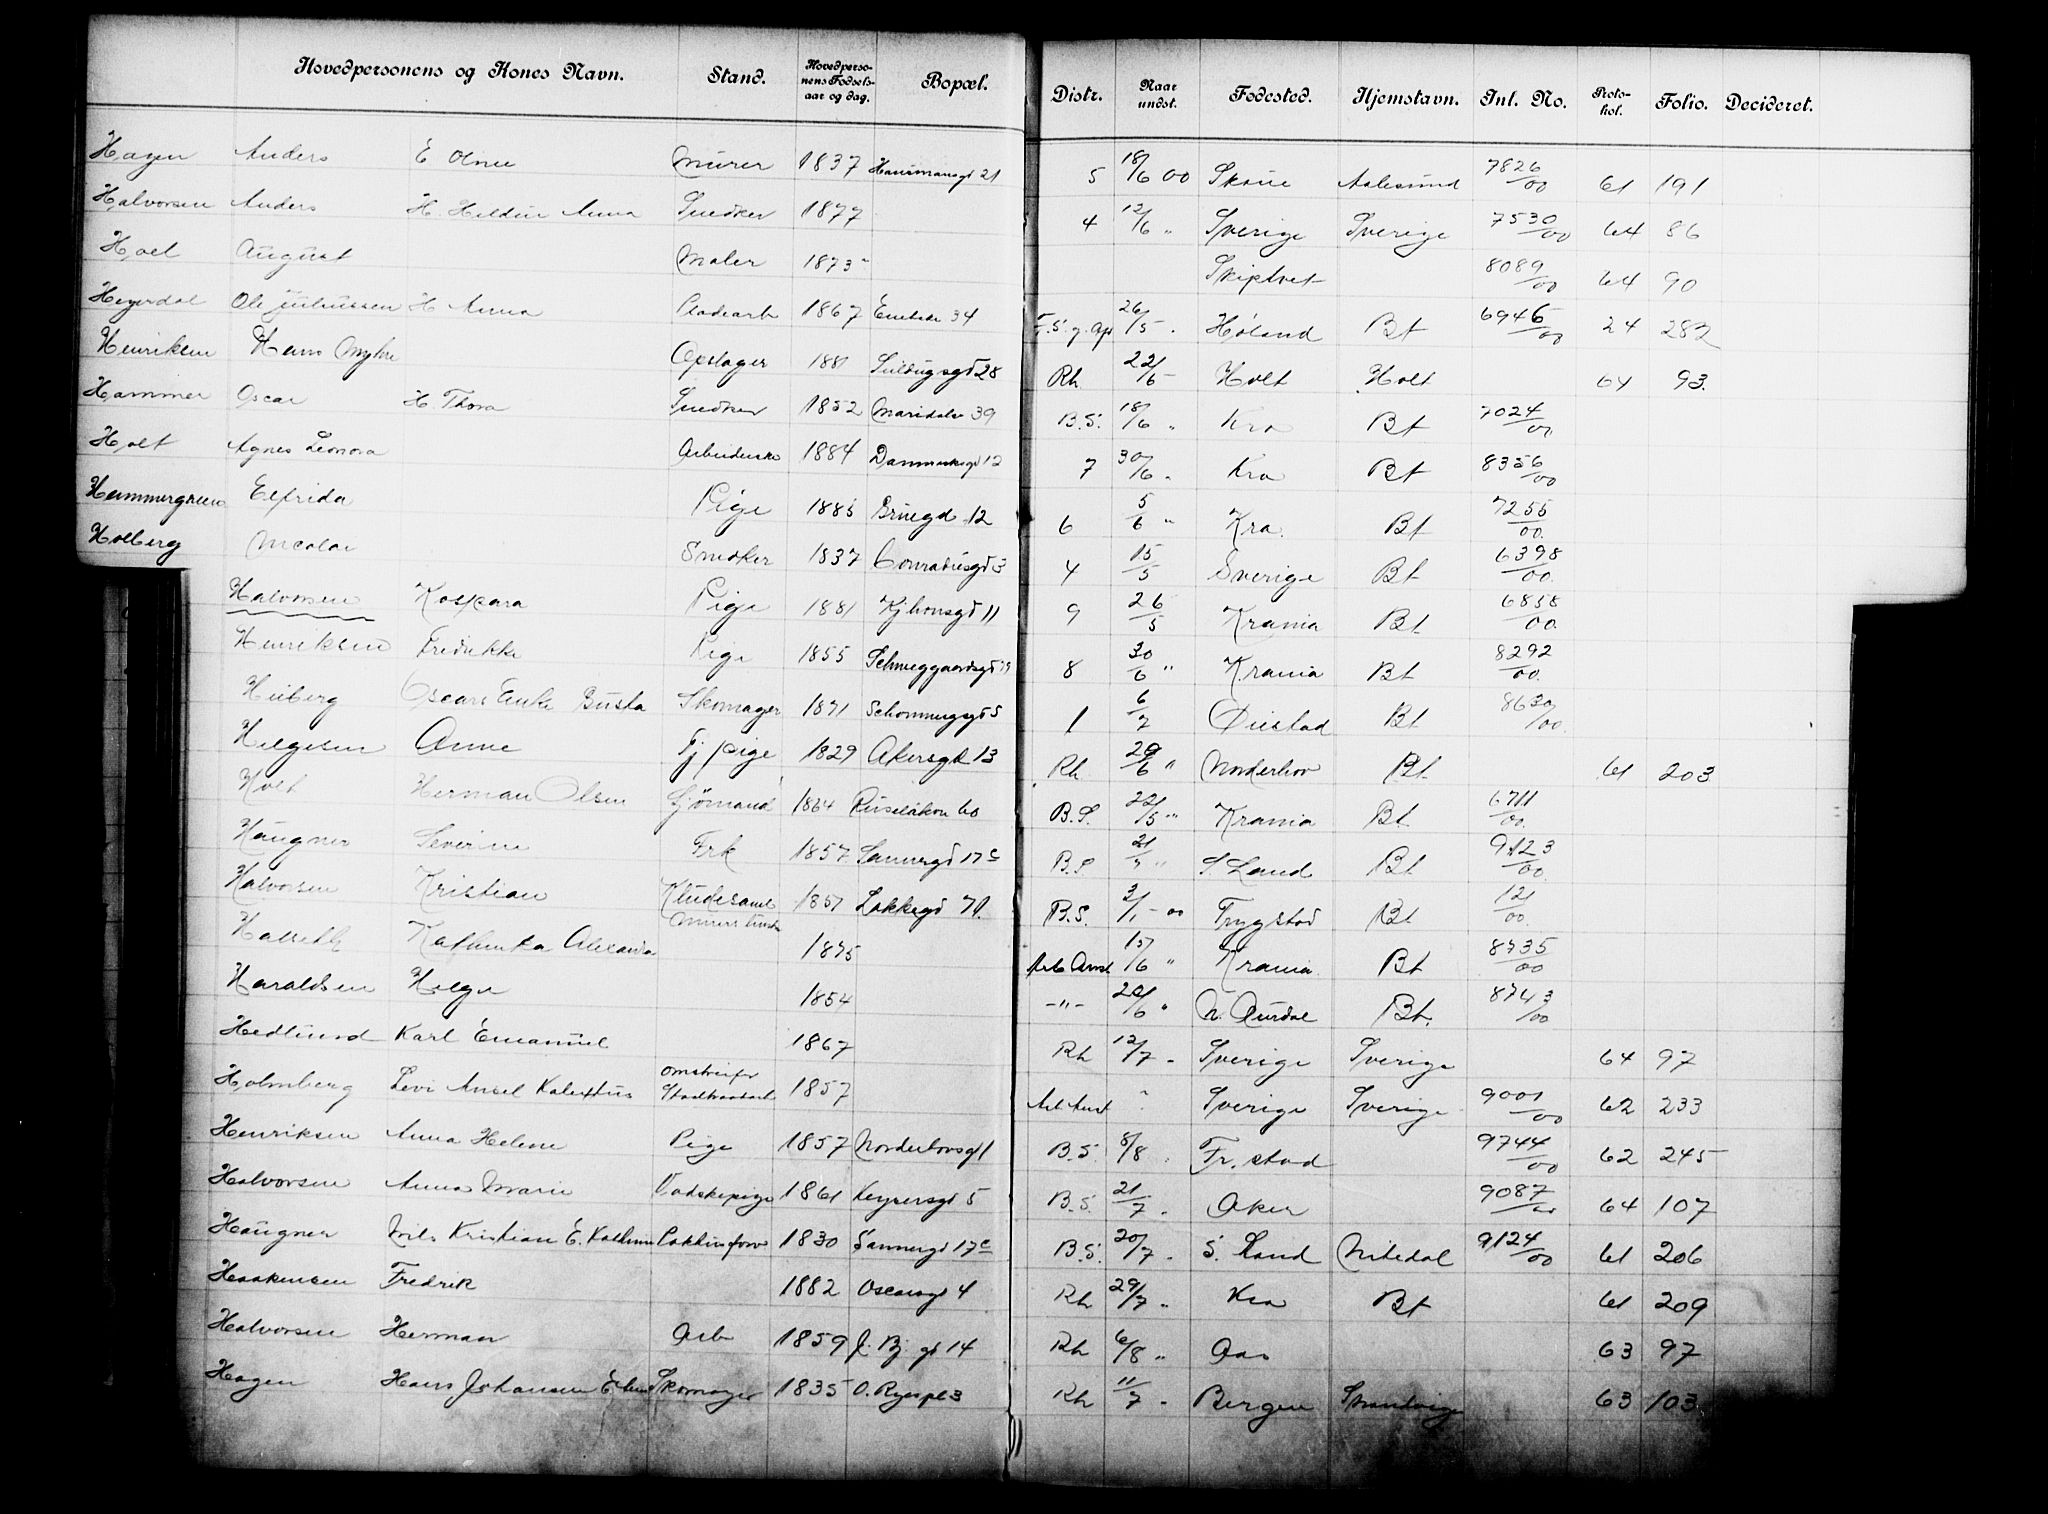 Hovedpersonens og Kones Navn. Stand. Hovedpersonens Fødselsaar og dag. Bopæl. Distr. Naar undst. Fødested. Hjemstavn. Inl. No. Protokol. Folio. Decideret.
Hagen Anders E Murer 1837 Hausmansgd 21 5 18/6 00 Aalesund 7826/00 61 191
Halvorsen Anders H. Anna Snedker 1877 4 12/6 " Sverige Sverige 7530/00 64 86
Hoel August Maler 1873 Skiptvet 8089/00 64 90
Heyerdal Ole Juliussen H Anna Pladearb 1867 34 26/5 Høland Bt 6946/00 24 282
Henriksen Hans Myhre Opslager 1881 28 Rh 22/6 Holt Holt 64 93.
Hammer Oscar H. Thora Snedker 1852 Maridalsv 39 B.S. 18/6 " Kra Bt 7024/00
Holt Agnes Leonora Arbeiderske 1884 Danmarksgd 12 7 30/6 Kra Bt 8356/00
Hammergreen Elfrida Pige 1885 Bruegd 12 6 5/6 " Kra. Bt 7255/00
Holberg Nicolai Snedker 1837 Conradisgd 3 4 15/5 Sverige Bt 6398/00
Halvorsen Kaspara Pige 1881 Kjhonsgd 11 9 26/5 Krania Bt 6858/00
Henriksen Fredrikke Pige 1855 Schweggaardsgd 8 30/6 " Krania Bt 8292/00
Heiberg Oscar Busta Skomager 1871 Schonningsgd 5 1 6/7 Øiestad Bt 8630/00
Helgesen Anne Tj pige 1829 Akersgd 13 Rh 29/6 " Norderhov Bt 61 203
Holt Herman Olsen Sjømand 1864 Ruseløkon 60 B.S. 22/5 " Krania Bt 6711/00
Haugner Severine Frk 1857 Sannergd 17 c B.S 21/7 " S Land Bt 9123/00
Halvorsen Kristian Kludesaml 1857 Lakkegd 71. B.S. 3/1 - 00 Trygstad Bt 121/00
Murers
Halseth Kathinka 1875 Arb Anst 15/6 " Krania Bt 8735/00
Haraldsen Helge 1854 -"- 22/6 " N. Aurdal Bt. 8743/00
Hedlund Karl Emanuel 1867 Rh 12/7 - Sverige Sverige 64 97
Holmberg Levi Ansel Kalixtus omstreifer 1857 Arb Anst " Sverige Sverige 9001/00 62 233
Henriksen Anna Helene Pige 1857 Norderhovsgd 1 B.S. 8/8 Fr. stad 9744/00 62 245
Halvorsen Anna Marie Vadskepige 1861 Keysersgd 5 B.S. 21/7 Aker 9087/00 64 107
Haugner Nils Kristian E. Pakhusforv 1830 Sannergd 17 c B.S. 20/7 S. Land Nitedal 9124/00 61 206
Haakensen Fredrik 1882 Oscarsgd 4 Rh 29/7 " Kra Bt 61 209
Halvorsen Herman Arb 1859 J. Bj. gd 14 Rh 6/8 " Aas 63 97
Hagen Hans Johansen Skomager 1835 O. Ryespl 3 Rh 11/7 - Bergen 63 103